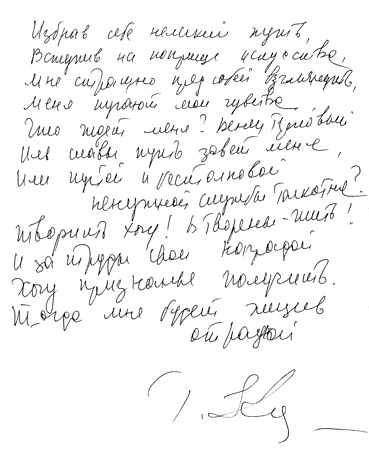 Избрав себе нелегкий путь,
Вступив на поприще искусства,
Мне страшно пред собой взглянуть,
Меня пугают мои чувства
Что ждет меня? Венец терновый
Иль славы путь зовет меня,
Или пустой и бестолковой
ненужной службы толкотня?
Творить хочу! В творении - жить!
И за труды свои наградой
Хочу признанье получить.
Тогда мне будет жизнь
отрадой